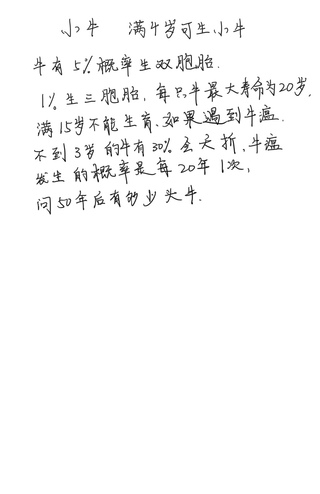 小牛 满4岁可生小牛
牛有5%概率生双胞胎.
1%生三胞胎,每只牛最大寿命为20岁,
满15岁不能生育.如果遇到牛瘟.
不到3岁的牛有30%会夭折,牛瘟
发生的概率是每20年1次,
问50年后有多少头牛.